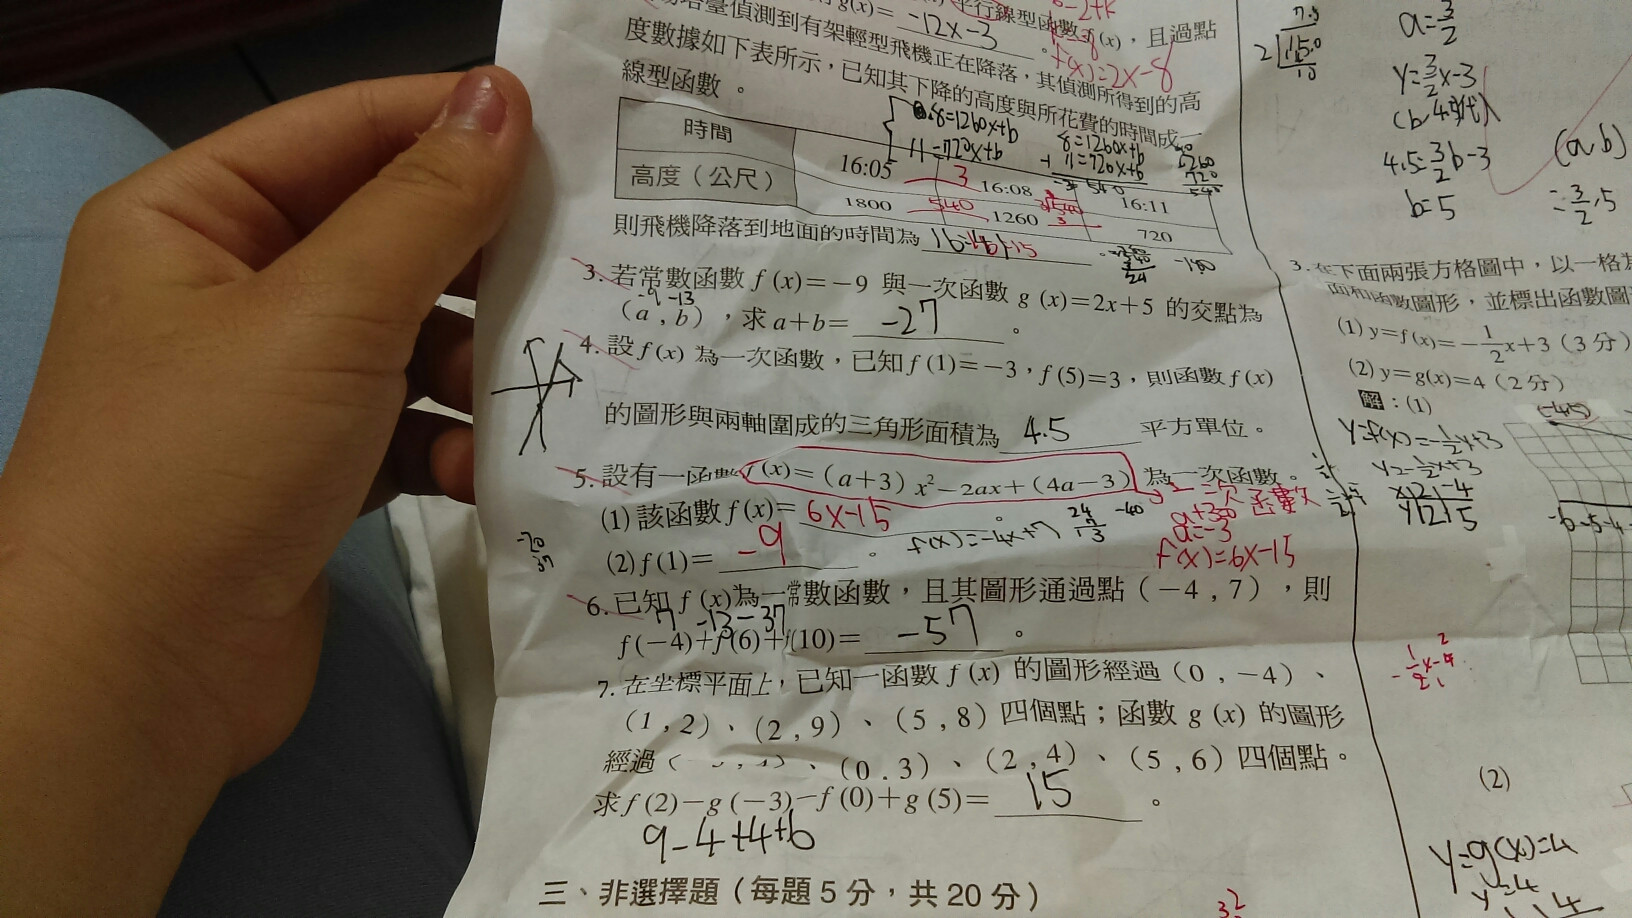 g(x)= -12x-3 。
平行線型函數 f(x)，且過點
f(x)=2x-8
偵測到有架輕型飛機正在降落，其偵測所得到的高
度數據如下表所示，已知其下降的高度與所花費的時間成一
線型函數。
8=1260x+b
11=720x+b
8=1260x+b
11=720x+b
時間 16:05 3 16:08 16:11
高度（公尺） 1800 540 1260 720
則飛機降落到地面的時間為
3. 若常數函數 f(x)=-9 與一次函數 g(x)=2x+5 的交點為
-9 -13
(a,b)，求a+b= -27 。
4. 設f(x)為一次函數，已知f(1)=-3，f(5)=3，則函數f(x)
的圖形與兩軸圍成的三角形面積為 4.5 平方單位。
5. 設有一函數f(x)=(a+3)x²-2ax+(4a-3)為一次函數。
(1)該函數f(x)= 6x-15 。
f(x)=-4x+7
a=-3
f(x)=6x-15
(2)f(1)= -9 。
-20
37
6. 已知f(x)為一常數函數，且其圖形通過點(-4,7)，則
7 -13 -37
f(-4)+f(6)+f(10)= -57 。
7. 在坐標平面上，已知一函數f(x)的圖形經過(0,-4)、
(1,2)、(2,9)、(5,8)四個點；函數g(x)的圖形
經過 、(0,3)、(2,4)、(5,6)四個點。
求f(2)-g(-3)-f(0)+g(5)= 15 。
9-4+4+6
三、非選擇題（每題5分，共20分）
7.5
2 15.0
10
a=3/2
y=3/2x-3
4.5=3/2b-3
b=5
(a,b)
=3/2,5
3. 在下面兩張方格圖中，以一格為
面和函數圖形，並標出函數圖
(1) y=f(x)=-1/2x+3（3分）
(2) y=g(x)=4（2分）
解：(1)
y=f(x)=-1/2x+3
x 2 -4
y 2 5
-6 -5 -4
(2)
y=g(x)=4
y=4